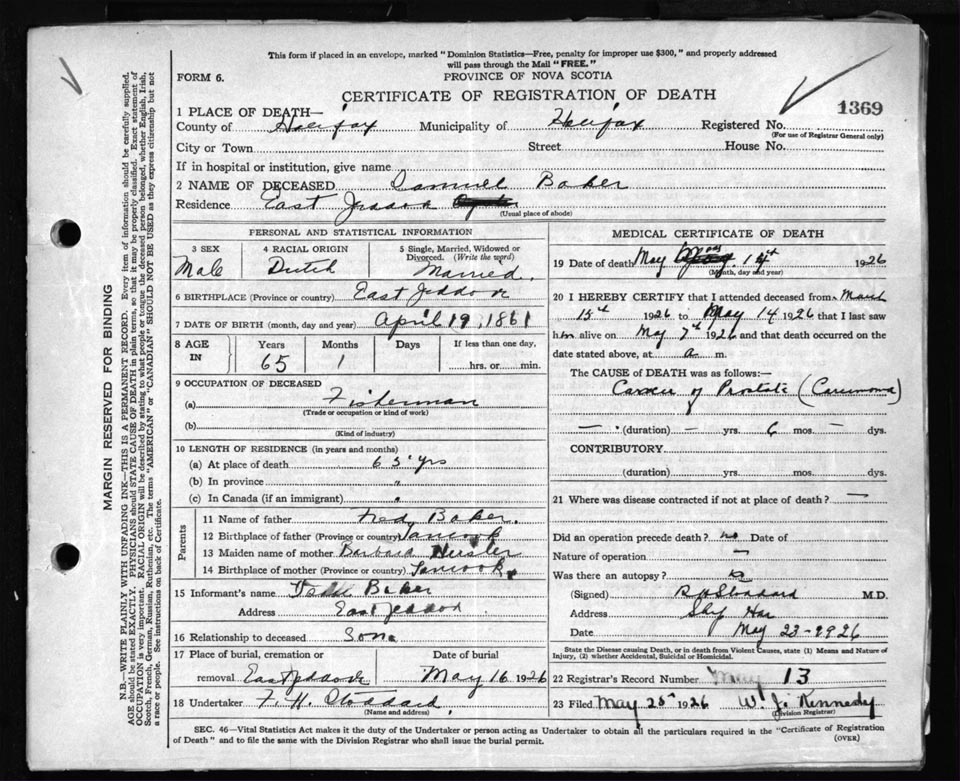 This form if placed in an envelope, marked "Dominion Statistics—Free, penalty for improper use $300," and properly addressed
will pass through the Mail "FREE."
FORM 6.
PROVINCE OF NOVA SCOTIA
CERTIFICATE OF REGISTRATION OF DEATH
1369
1 PLACE OF DEATH—
County of Halifax Municipality of Halifax Registered No.
(For use of Registrar General only)
City or Town Street House No.
If in hospital or institution, give name
2 NAME OF DECEASED Samuel Baker
Residence East Jeddore
(Usual place of abode)
PERSONAL AND STATISTICAL INFORMATION
3 SEX 4 RACIAL ORIGIN 5 Single, Married, Widowed or
Divorced. (Write the word)
Male Dutch Married.
6 BIRTHPLACE (Province or country) East Jeddore
7 DATE OF BIRTH (month, day and year) April 19, 1861
8 AGE
IN
Years Months Days If less than one day,
65 1 hrs. or min.
9 OCCUPATION OF DECEASED
(a) Fisherman
(Trade or occupation or kind of work)
(b)
(Kind of industry)
10 LENGTH OF RESIDENCE (in years and months)
(a) At place of death 65 yrs
(b) In province "
(c) In Canada (if an immigrant) "
Parents
11 Name of father Baker.
12 Birthplace of father (Province or country)
13 Maiden name of mother Barbara
14 Birthplace of mother (Province or country)
15 Informant's name Baker
Address East Jeddore
16 Relationship to deceased Son
17 Place of burial, cremation or Date of burial
removal East Jeddore May 16 1926
18 Undertaker F. H. Stoddard.
(Name and address)
MEDICAL CERTIFICATE OF DEATH
19 Date of death May 14th 1926
(Month, day and year)
20 I HEREBY CERTIFY that I attended deceased from March
15th 1926 to May 14 1926 that I last saw
him alive on May 7th 1926 and that death occurred on the
date stated above, at a m.
The CAUSE of DEATH was as follows:—
Cancer of Prostate (Carcinoma)
— (duration) — yrs. 6 mos. — dys.
CONTRIBUTORY
(duration) yrs. mos. dys.
21 Where was disease contracted if not at place of death? —
Did an operation precede death? no Date of
Nature of operation —
Was there an autopsy?
(Signed) Stoddard M.D.
Address Ship Har
Date May 23-1926
State the Disease causing Death, or in death from Violent Causes, state (1) Means and Nature of
Injury, (2) whether Accidental, Suicidal or Homicidal.
22 Registrar's Record Number 13
23 Filed May 25th 1926 W. J. Kennedy
(Division Registrar)
SEC. 46—Vital Statistics Act makes it the duty of the Undertaker or person acting as Undertaker to obtain all the particulars required in the "Certificate of Registration
of Death" and to file the same with the Division Registrar who shall issue the burial permit. (OVER)
MARGIN RESERVED FOR BINDING
N.B.—WRITE PLAINLY WITH UNFADING INK—THIS IS A PERMANENT RECORD. Every item of information should be carefully supplied.
AGE should be stated EXACTLY. PHYSICIANS should STATE CAUSE OF DEATH in plain terms, so that it may be properly classified. Exact statement of
OCCUPATION is very important. RACIAL ORIGIN will be described by stating to what people or tongue the deceased person belonged, whether English, Irish,
Scotch, French, German, Russian, Ruthenian, etc. The terms "AMERICAN" or "CANADIAN" SHOULD NOT BE USED as they express citizenship but not
a race or people. See instructions on back of Certificate.